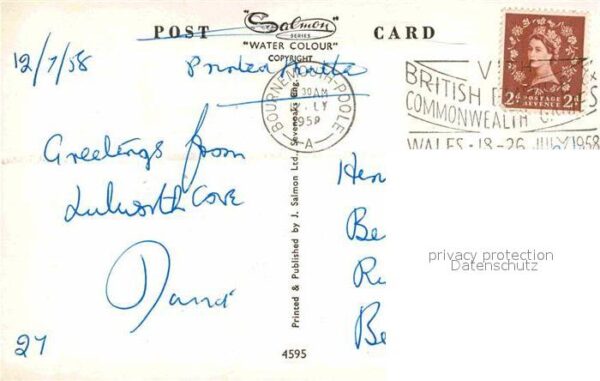 POST CARD
"Salmon
SERIES
"WATER COLOUR"
COPYRIGHT
12/7/58
Printed Matter
BOURNEMOUTH-POOLE
30AM
LY
1958
A
BRITISH
COMMONWEALTH
WALES · 18-26 JULY 1958
2D POSTAGE REVENUE 2D
Greetings from
Lulworth Cove
David
27
Printed & Published by J. Salmon Ltd., Sevenoaks Eng.
4595
Be
Be
privacy protection
Datenschutz